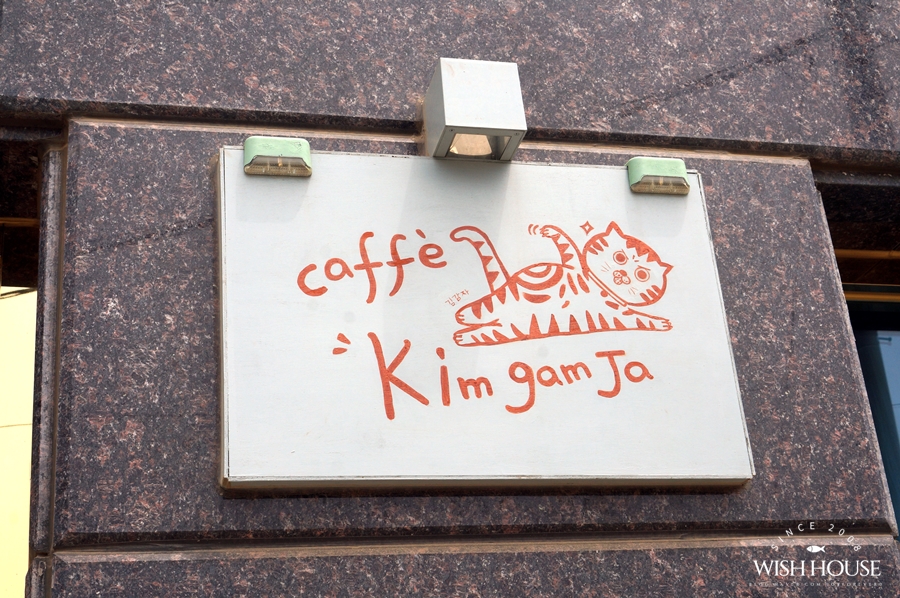 caffè
김감자
Kim gam Ja
SINCE 2008
WISH HOUSE